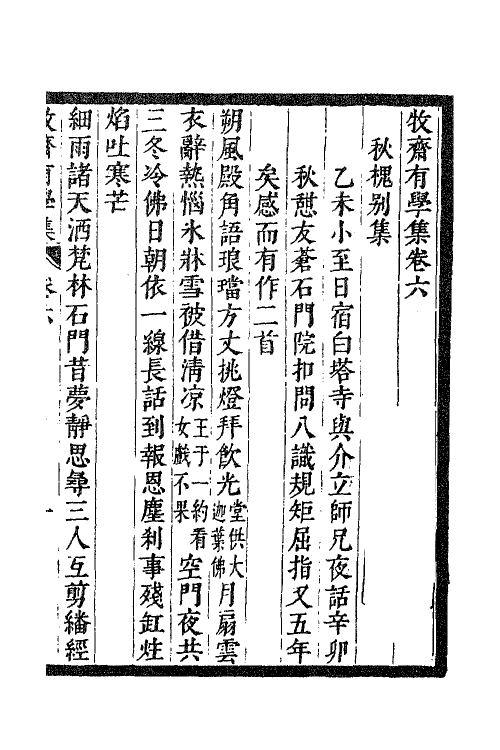 牧齋有學集卷六
秋槐别集
乙未小至日宿白塔寺與介立師兄夜話辛卯
秋憩友蒼石門院扣問八識規矩屈指又五年
矣感而有作二首
朔風殿角語琅璫方丈挑燈拜飲光堂供大迦葉佛月扇雲
衣辭熱惱氷牀雪被借清凉王于一約看女戲不果空門夜共
三冬冷佛日朝依一線長話到報恩塵刹事殘缸炷
焰吐寒芒
細雨諸天洒梵林石門昔夢靜思尋三人互剪繙經
牧齋有學集 卷六 一